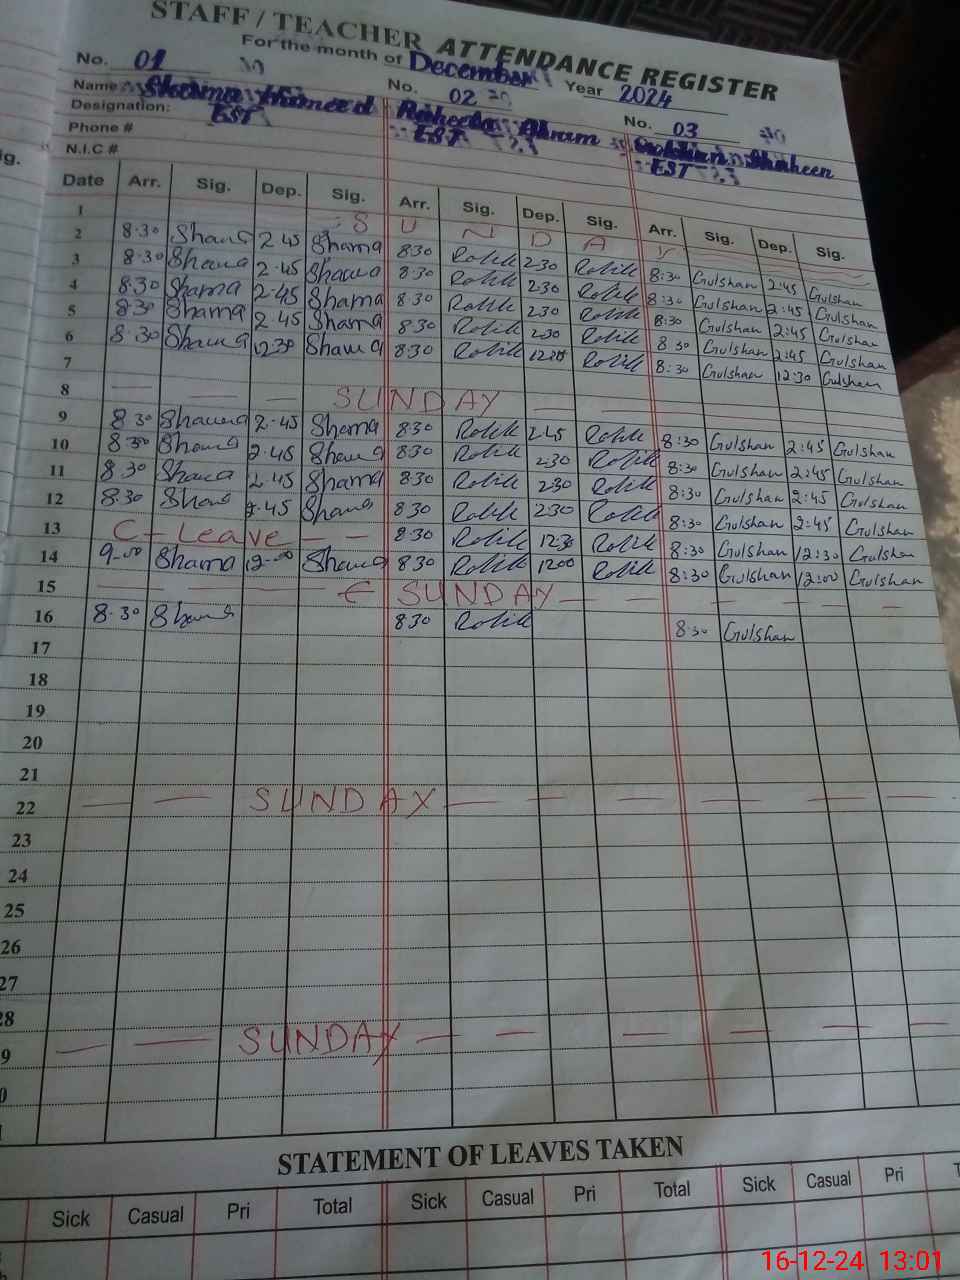 STAFF / TEACHER ATTENDANCE REGISTER
For the month of December Year 2024
No. 01 No. 02 No. 03
Name Shama Hameed Raheela Akram Gulshan Shaheen
Designation: EST EST EST
Phone #
N.I.C #
Date Arr. Sig. Dep. Sig. Arr. Sig. Dep. Sig. Arr. Sig. Dep. Sig.
1 S U N D A Y
2 8:30 Shama 2.45 Shama 8:30 2:30 8:30 Gulshan 2:45 Gulshan
3 8:30 Shama 2.45 Shama 8:30 2:30 8:30 Gulshan 2:45 Gulshan
4 8:30 Shama 2.45 Shama 8:30 2:30 8:30 Gulshan 2:45 Gulshan
5 8:30 Shama 2.45 Shama 8:30 2:30 8:30 Gulshan 2:45 Gulshan
6 8:30 Shama 12:30 Shama 8:30 8:30 Gulshan 12:30 Gulshan
7
8 SUNDAY
9 8:30 Shama 2.45 Shama 8:30 2:45 8:30 Gulshan 2:45 Gulshan
10 8:30 Shama 2.45 Shama 8:30 2:30 8:30 Gulshan 2:45 Gulshan
11 8:30 Shama 2.45 Shama 8:30 2:30 8:30 Gulshan 2:45 Gulshan
12 8:30 Shama 2.45 Shama 8:30 2:30 8:30 Gulshan 2:45 Gulshan
13 C-Leave 8:30 12:30 8:30 Gulshan 12:30 Gulshan
14 9-00 Shama 12-00 Shama 8:30 1200 8:30 Gulshan 12:00 Gulshan
15 SUNDAY
16 8:30 Shama 8:30 8:30 Gulshan
17
18
19
20
21
22 SUNDAY
23
24
25
26
27
28
9 SUNDAY
0
STATEMENT OF LEAVES TAKEN
Sick Casual Pri Total Sick Casual Pri Total Sick Casual Pri T
16-12-24 13:01